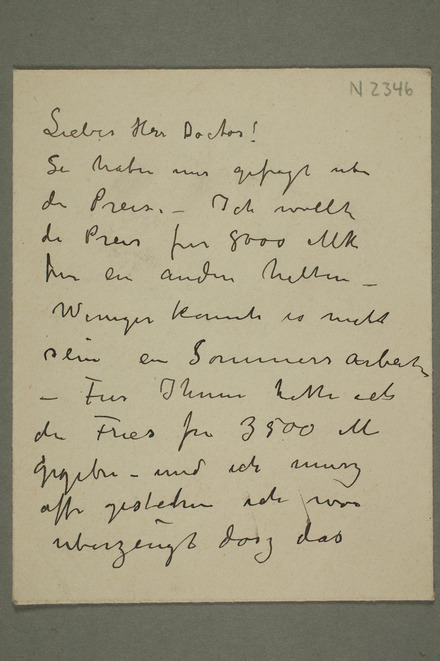 N 2346
Lieber Herr Doctor!
Sie haben mir gefragt uber
den Preis. – Ich wollte
die Preis fur 8000 Mk
fur en anden halten –
Weniger konnte es nicht
sein en Sommers arbeit
– Fur Ihnen hatte ich
den Fries fur 3500 M
gegeben – und ich musz
offen gestehen ich war
uberzeugt dasz das